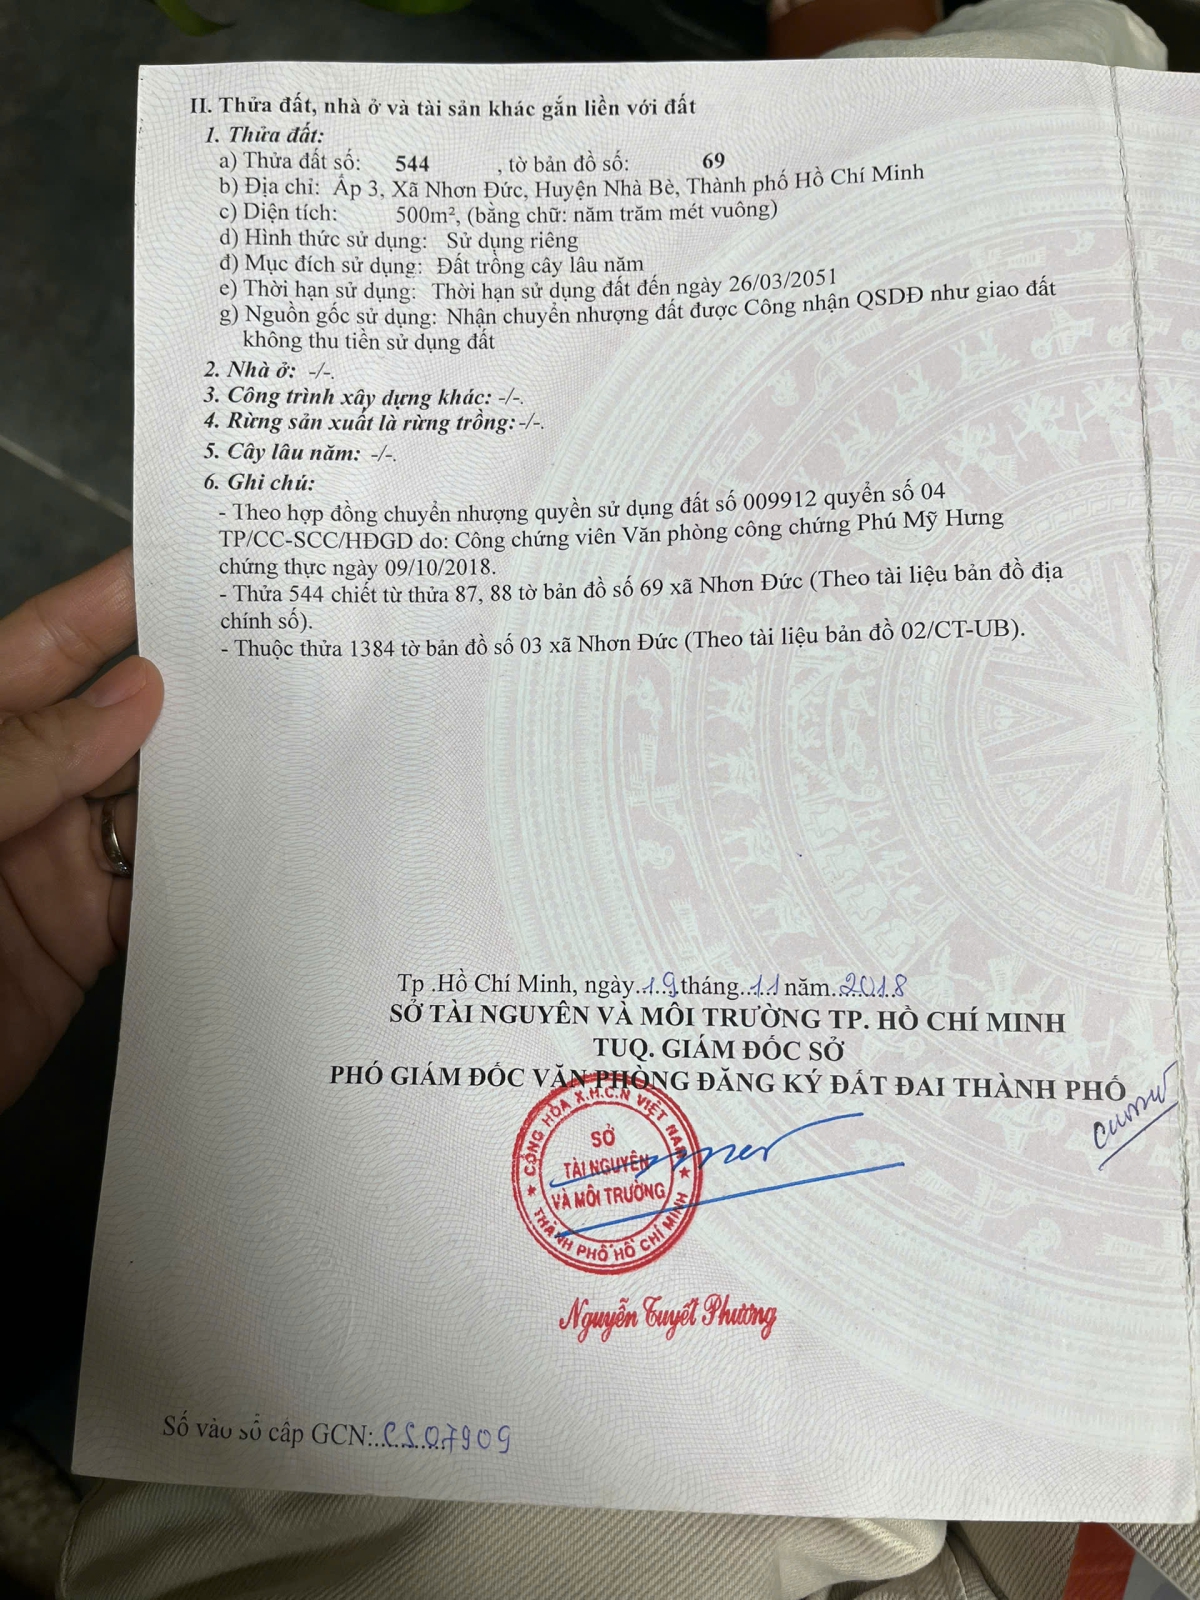 II. Thửa đất, nhà ở và tài sản khác gắn liền với đất
1. Thửa đất:
a) Thửa đất số: 544 , tờ bản đồ số: 69
b) Địa chỉ: Ấp 3, Xã Nhơn Đức, Huyện Nhà Bè, Thành phố Hồ Chí Minh
c) Diện tích: 500m², (bằng chữ: năm trăm mét vuông)
d) Hình thức sử dụng: Sử dụng riêng
đ) Mục đích sử dụng: Đất trồng cây lâu năm
e) Thời hạn sử dụng: Thời hạn sử dụng đất đến ngày 26/03/2051
g) Nguồn gốc sử dụng: Nhận chuyển nhượng đất được Công nhận QSDĐ như giao đất
không thu tiền sử dụng đất
2. Nhà ở: -/-.
3. Công trình xây dựng khác: -/-.
4. Rừng sản xuất là rừng trồng: -/-.
5. Cây lâu năm: -/-.
6. Ghi chú:
- Theo hợp đồng chuyển nhượng quyền sử dụng đất số 009912 quyển số 04
TP/CC-SCC/HĐGD do: Công chứng viên Văn phòng công chứng Phú Mỹ Hưng
chứng thực ngày 09/10/2018.
- Thửa 544 chiết từ thửa 87, 88 tờ bản đồ số 69 xã Nhơn Đức (Theo tài liệu bản đồ địa
chính số).
- Thuộc thửa 1384 tờ bản đồ số 03 xã Nhơn Đức (Theo tài liệu bản đồ 02/CT-UB).
Tp .Hồ Chí Minh, ngày..19.tháng..11 năm..2018
SỞ TÀI NGUYÊN VÀ MÔI TRƯỜNG TP. HỒ CHÍ MINH
TUQ. GIÁM ĐỐC SỞ
PHÓ GIÁM ĐỐC VĂN PHÒNG ĐĂNG KÝ ĐẤT ĐAI THÀNH PHỐ
CỘNG HÒA X.H.C.N VIỆT NAM
SỞ
TÀI NGUYÊN
VÀ MÔI TRƯỜNG
THÀNH PHỐ HỒ CHÍ MINH
Nguyễn Tuyết Phương
Số vào sổ cấp GCN:..CS07909